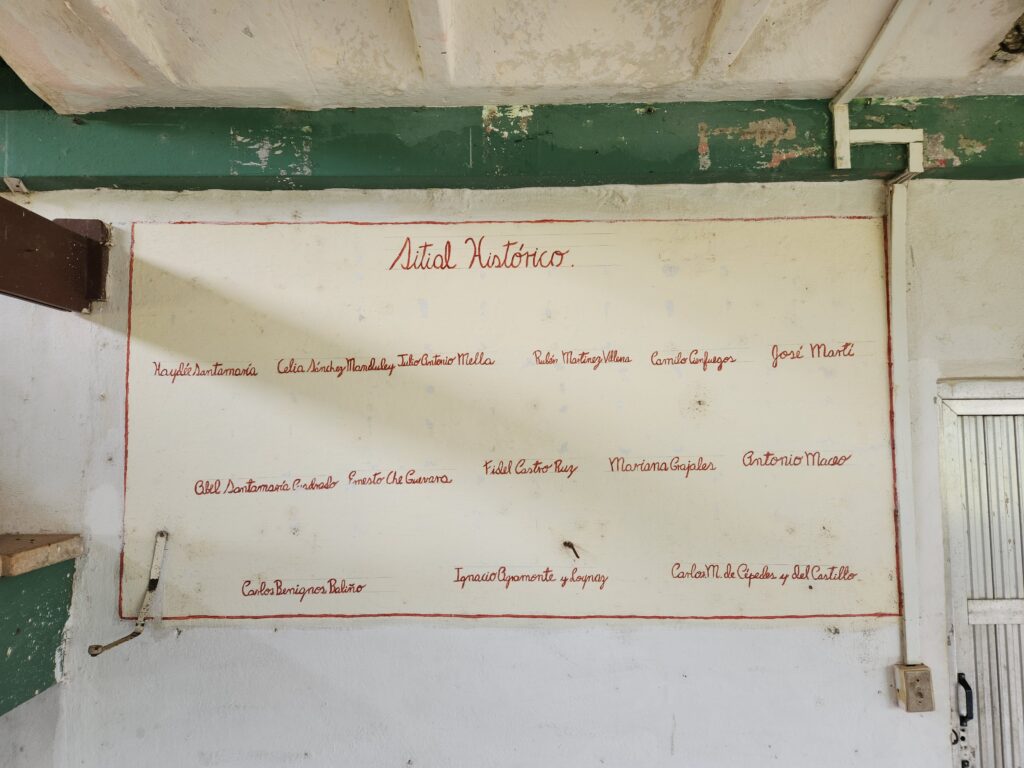 Sitial Histórico.
Haydée Santamaría Celia Sánchez Manduley Julio Antonio Mella Rubén Martínez Villena Camilo Cienfuegos José Martí
Abel Santamaría Cuadrado Ernesto Che Guevara Fidel Castro Ruz Mariana Grajales Antonio Maceo
Carlos Benignos Baliño Ignacio Agramonte y Loynaz Carlos M. de Céspedes y del Castillo